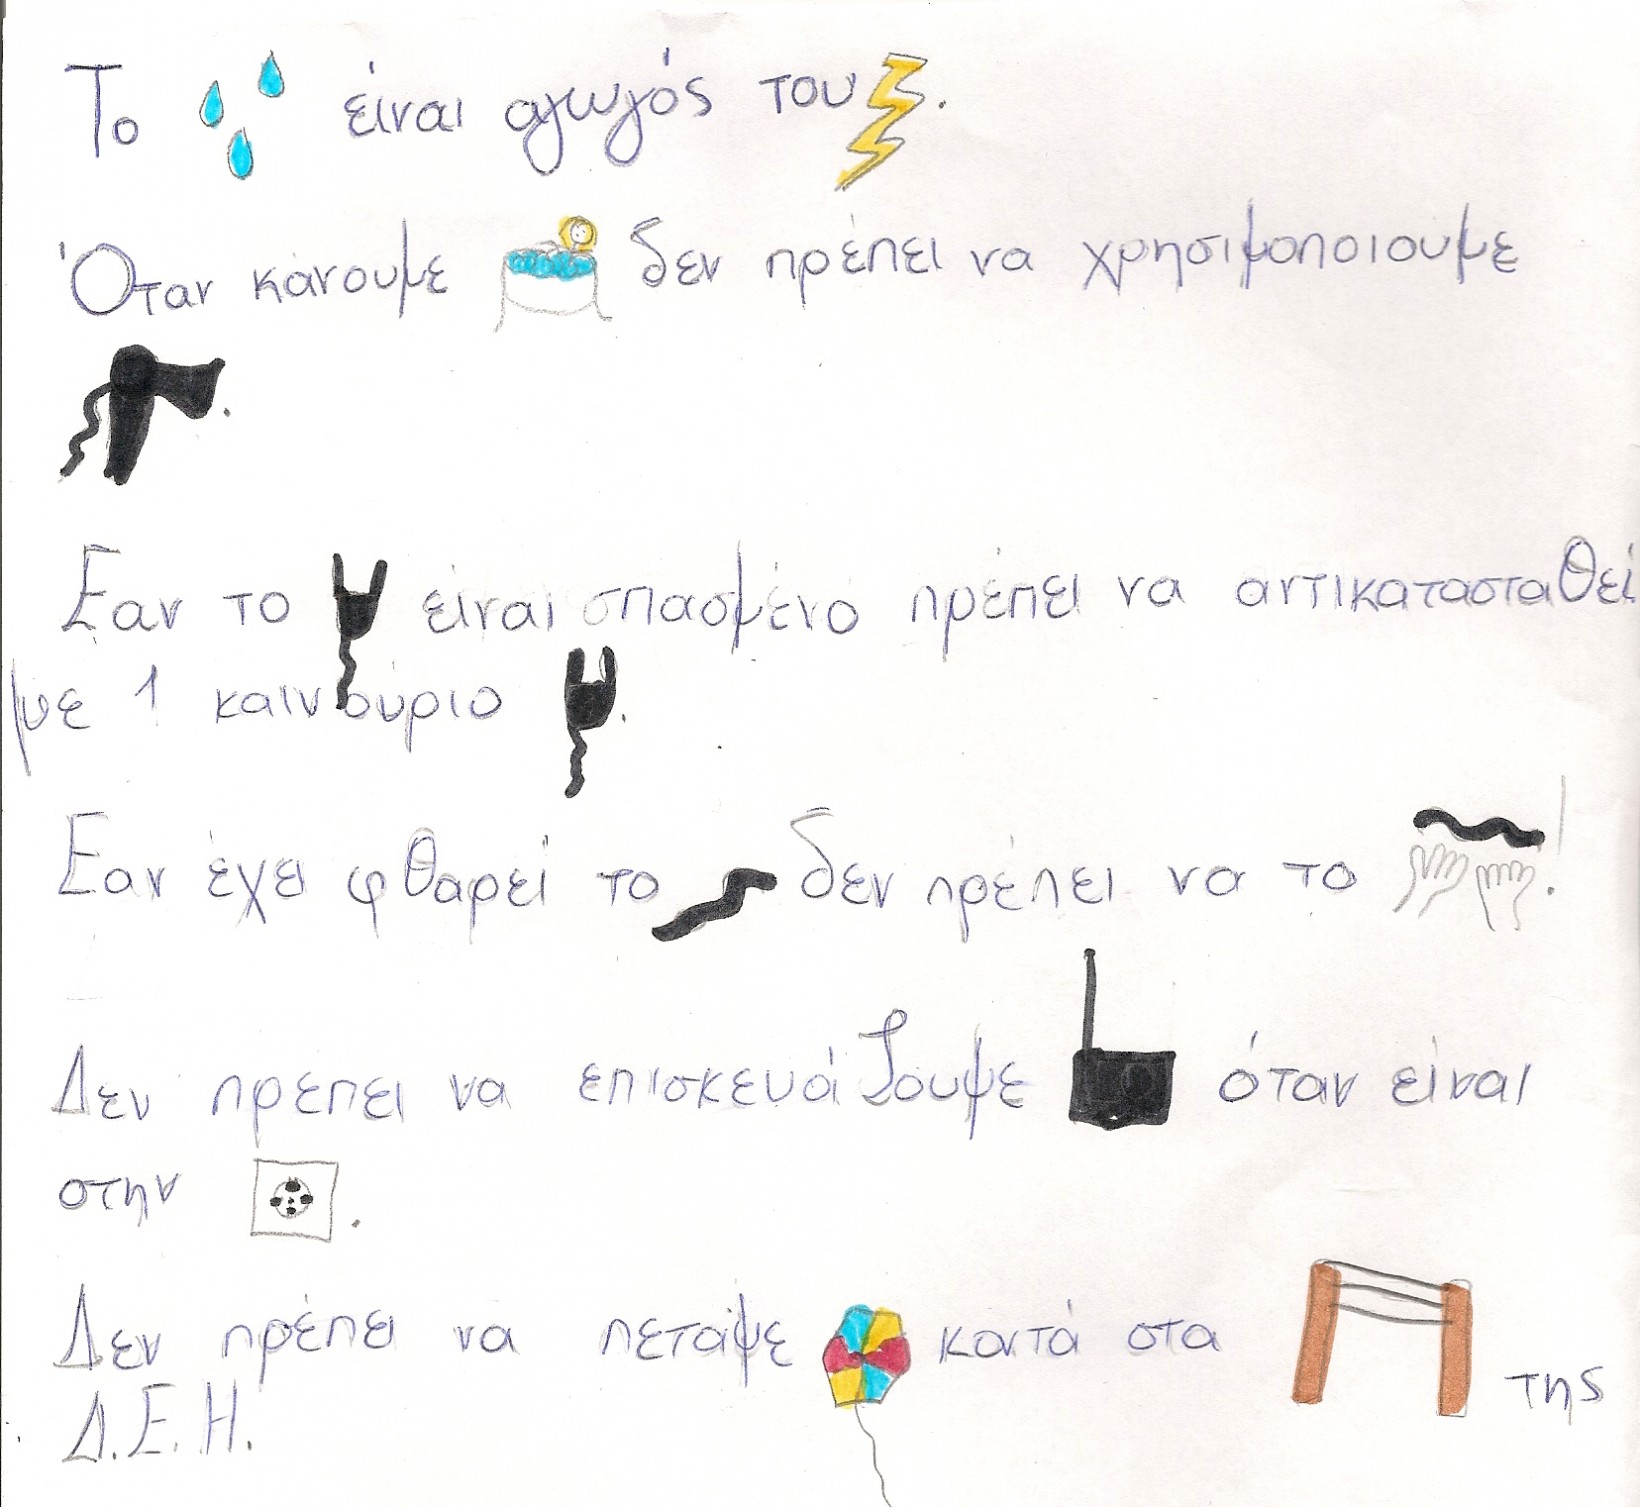 Το είναι αγωγός του .
Όταν κάνουμε δεν πρέπει να χρησιμοποιουμε
.
Εαν το είναι σπασμένο πρέπει να αντικατασταθεί
με 1 καινούριο .
Εαν έχει φθαρεί το δεν πρέπει να το .
Δεν πρέπει να επισκευάζουμε όταν είναι
στην .
Δεν πρέπει να πεταμε κοντά στα της
Δ.Ε.Η.